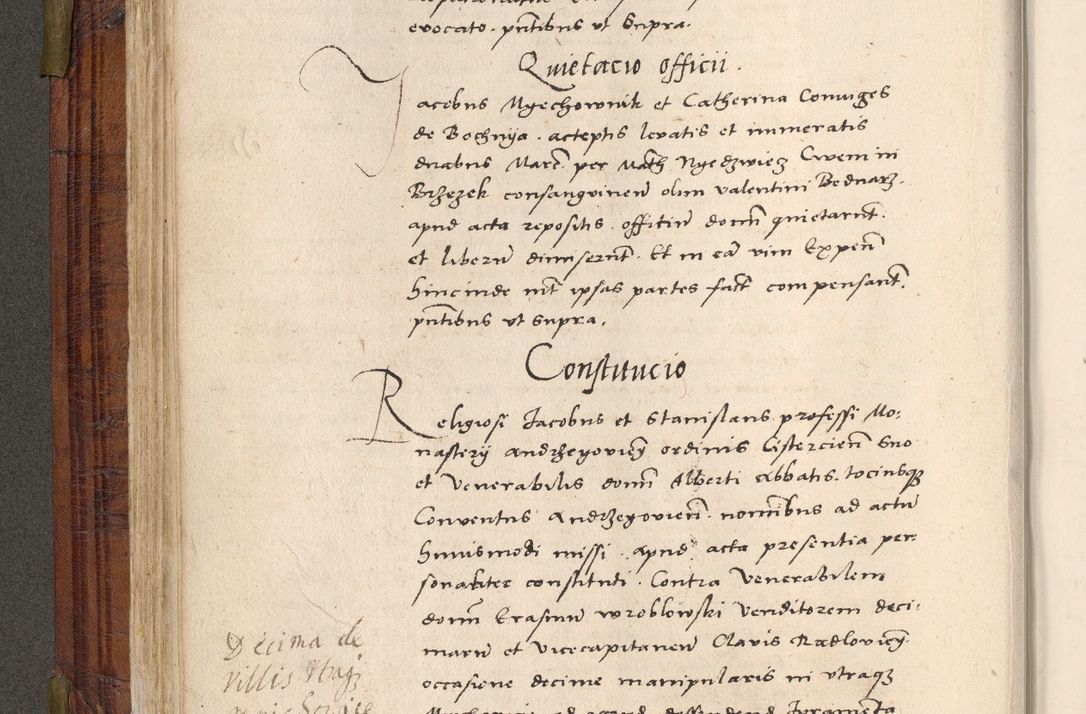 evocato. pn̄tibus ut Supra.
Quietacio officii.
Jacobus Mgechownik et Catherina Coniuges
de Bochnija. acceptis levatis et immeratis
duabus Marc̄. per Math̄ Nyedzwiecz Civem in
Brzezek consanguineū olim Valentini Bednarz.
apud acta repositis. officiū domīn quietarūt.
et liberū dimiserūt. Et in eā vim Expen̄
hincinde int̄ ipsas partes fact̄ compensant̄.
pn̄tibus ut Supra.
Constitucio
Religiosi Jacobus et Stanislaus professi Mo:
nasterij Andrzegovien̄ ordinis Cistercien̄ Suo
et Venerabilis domīn Alberti Abbatis. tociusq̃
Conventus Andrzegovien̄. nomībus ad actū
huiusmodi missi. apud acta presentia per:
sonaliter constituti. Contra Venerabilem
domīn Erasmū Wroblowski Venditorem deci:
marū et Vicecapitaneū Clavis Radlovien̄
occasione decime manipularis in utraq̃
Decima de
Villis